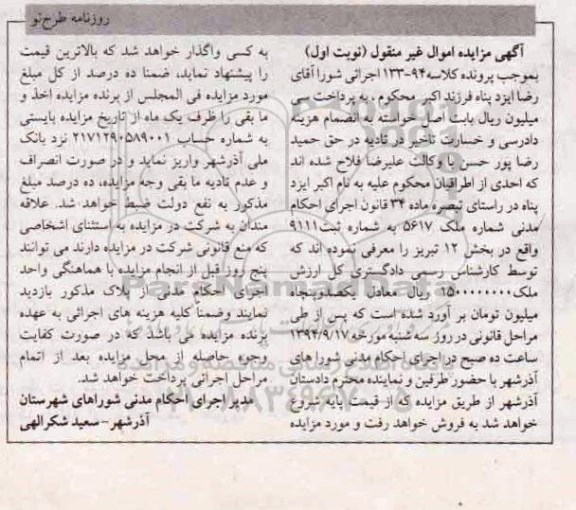 روزنامه طرح نو
آگهی مزایده اموال غیر منقول (نوبت اول)
بموجب پرونده کلاسه ۹۴-۱۳۳ اجرائی شورا آقای
رضا ایزد پناه فرزند اکبر محکوم ، به پرداخت سی
میلیون ریال بابت اصل خواسته به انضمام هزینه
دادرسی و خسارت تاخیر در تادیه در حق حمید
رضا پور حسن با وکالت علیرضا فلاح شده اند
که احدی از اطرافیان محکوم علیه به نام اکبر ایزد
پناه در راستای تبصره ماده ۳۴ قانون اجرای احکام
مدنی شماره ملک ۵۶۱۷ به شماره ثبت ۹۱۱۱
واقع در بخش ۱۲ تبریز را معرفی نموده اند که
توسط کارشناس رسمی دادگستری کل ارزش
ملک ۱۵۰۰۰۰۰۰۰۰ ریال معادل یکصدوپنجاه
میلیون تومان بر آورد شده است که پس از طی
مراحل قانونی در روز سه شنبه مورخه ۱۳۹۴/۹/۱۷
ساعت ده صبح در اجرای احکام مدنی شورا های
آذرشهر با حضور طرفین و نماینده محترم دادستان
آذرشهر از طریق مزایده که از قیمت پایه شروع
خواهد شد به فروش خواهد رفت و مورد مزایده
به کسی واگذار خواهد شد که بالاترین قیمت
را پیشنهاد نماید، ضمنا ده درصد از کل مبلغ
مورد مزایده فی المجلس از برنده مزایده اخذ و
ما بقی را ظرف یک ماه از تاریخ مزایده بایستی
به شماره حساب ۲۱۷۱۲۹۰۵۸۹۰۰۱ نزد بانک
ملی آذرشهر واریز نماید و در صورت انصراف
و عدم تادیه ما بقی وجه مزایده، ده درصد مبلغ
مذکور به نفع دولت ضبط خواهد شد. علاقه
مندان به شرکت در مزایده به استثنای اشخاصی
که منع قانونی شرکت در مزایده دارند می توانند
پنج روز قبل از انجام مزایده با هماهنگی واحد
اجرای احکام مدنی از پلاک مذکور بازدید
نمایند وضمناً کلیه هزینه های اجرائی به عهده
برنده مزایده می باشد که در صورت کفایت
وجوه حاصله از محل مزایده بعد از اتمام
مراحل اجرائی پرداخت خواهد شد.
مدیر اجرای احکام مدنی شوراهای شهرستان
آذرشهر-سعید شکرالهی